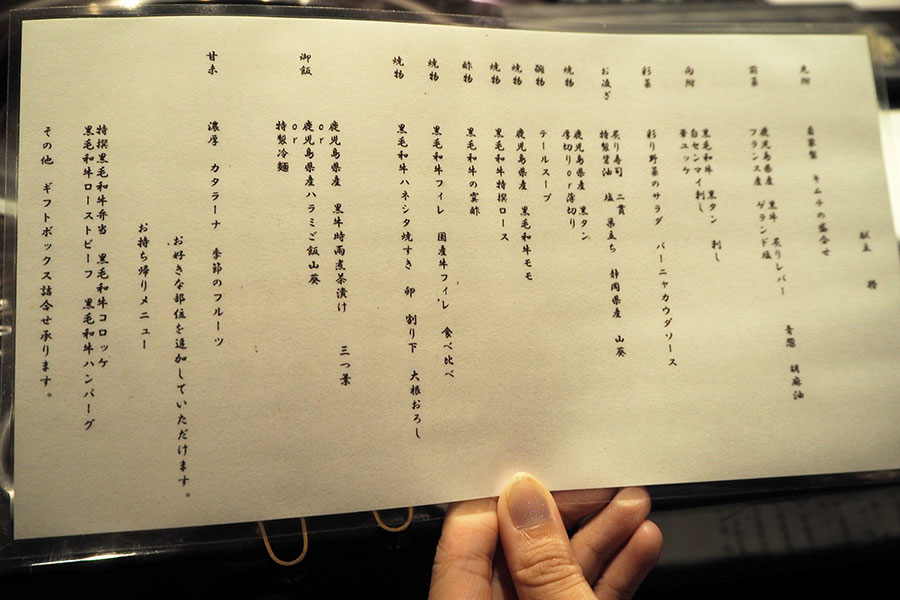 献立 椿
先附
自家製 キムチの盛合せ
前菜
鹿児島県産 黒牛 炙りレバー 青葱 胡麻油
フランス産 ゲランド塩
向附
黒毛和牛 黒タン 刺し
白センマイ刺し
華ユッケ
彩菜
彩り野菜のサラダ バーニャカウダソース
お凌ぎ
炙り寿司 二貫
特製醤油 塩 県立ち 静岡県産 山葵
焼物
鹿児島県産 黒タン
厚切りor薄切り
碗物
テールスープ
焼物
鹿児島県産 黒毛和牛モモ
焼物
黒毛和牛特撰ロース
酢物
黒毛和牛の雲酢
焼物
黒毛和牛フィレ 国産牛フィレ 食べ比べ
焼物
黒毛和牛ハネシタ焼すき 卵 割り下 大根おろし
御飯
鹿児島県産 黒牛時雨煮茶漬け 三つ葉
or
鹿児島県産ハラミご飯山葵
or
特製冷麺
甘未
濃厚 カタラーナ 季節のフルーツ
お好きな部位を追加していただけます。
お持ち帰りメニュー
特撰黒毛和牛弁当 黒毛和牛コロッケ
黒毛和牛ローストビーフ 黒毛和牛ハンバーグ
その他 ギフトボックス詰合せ承ります。